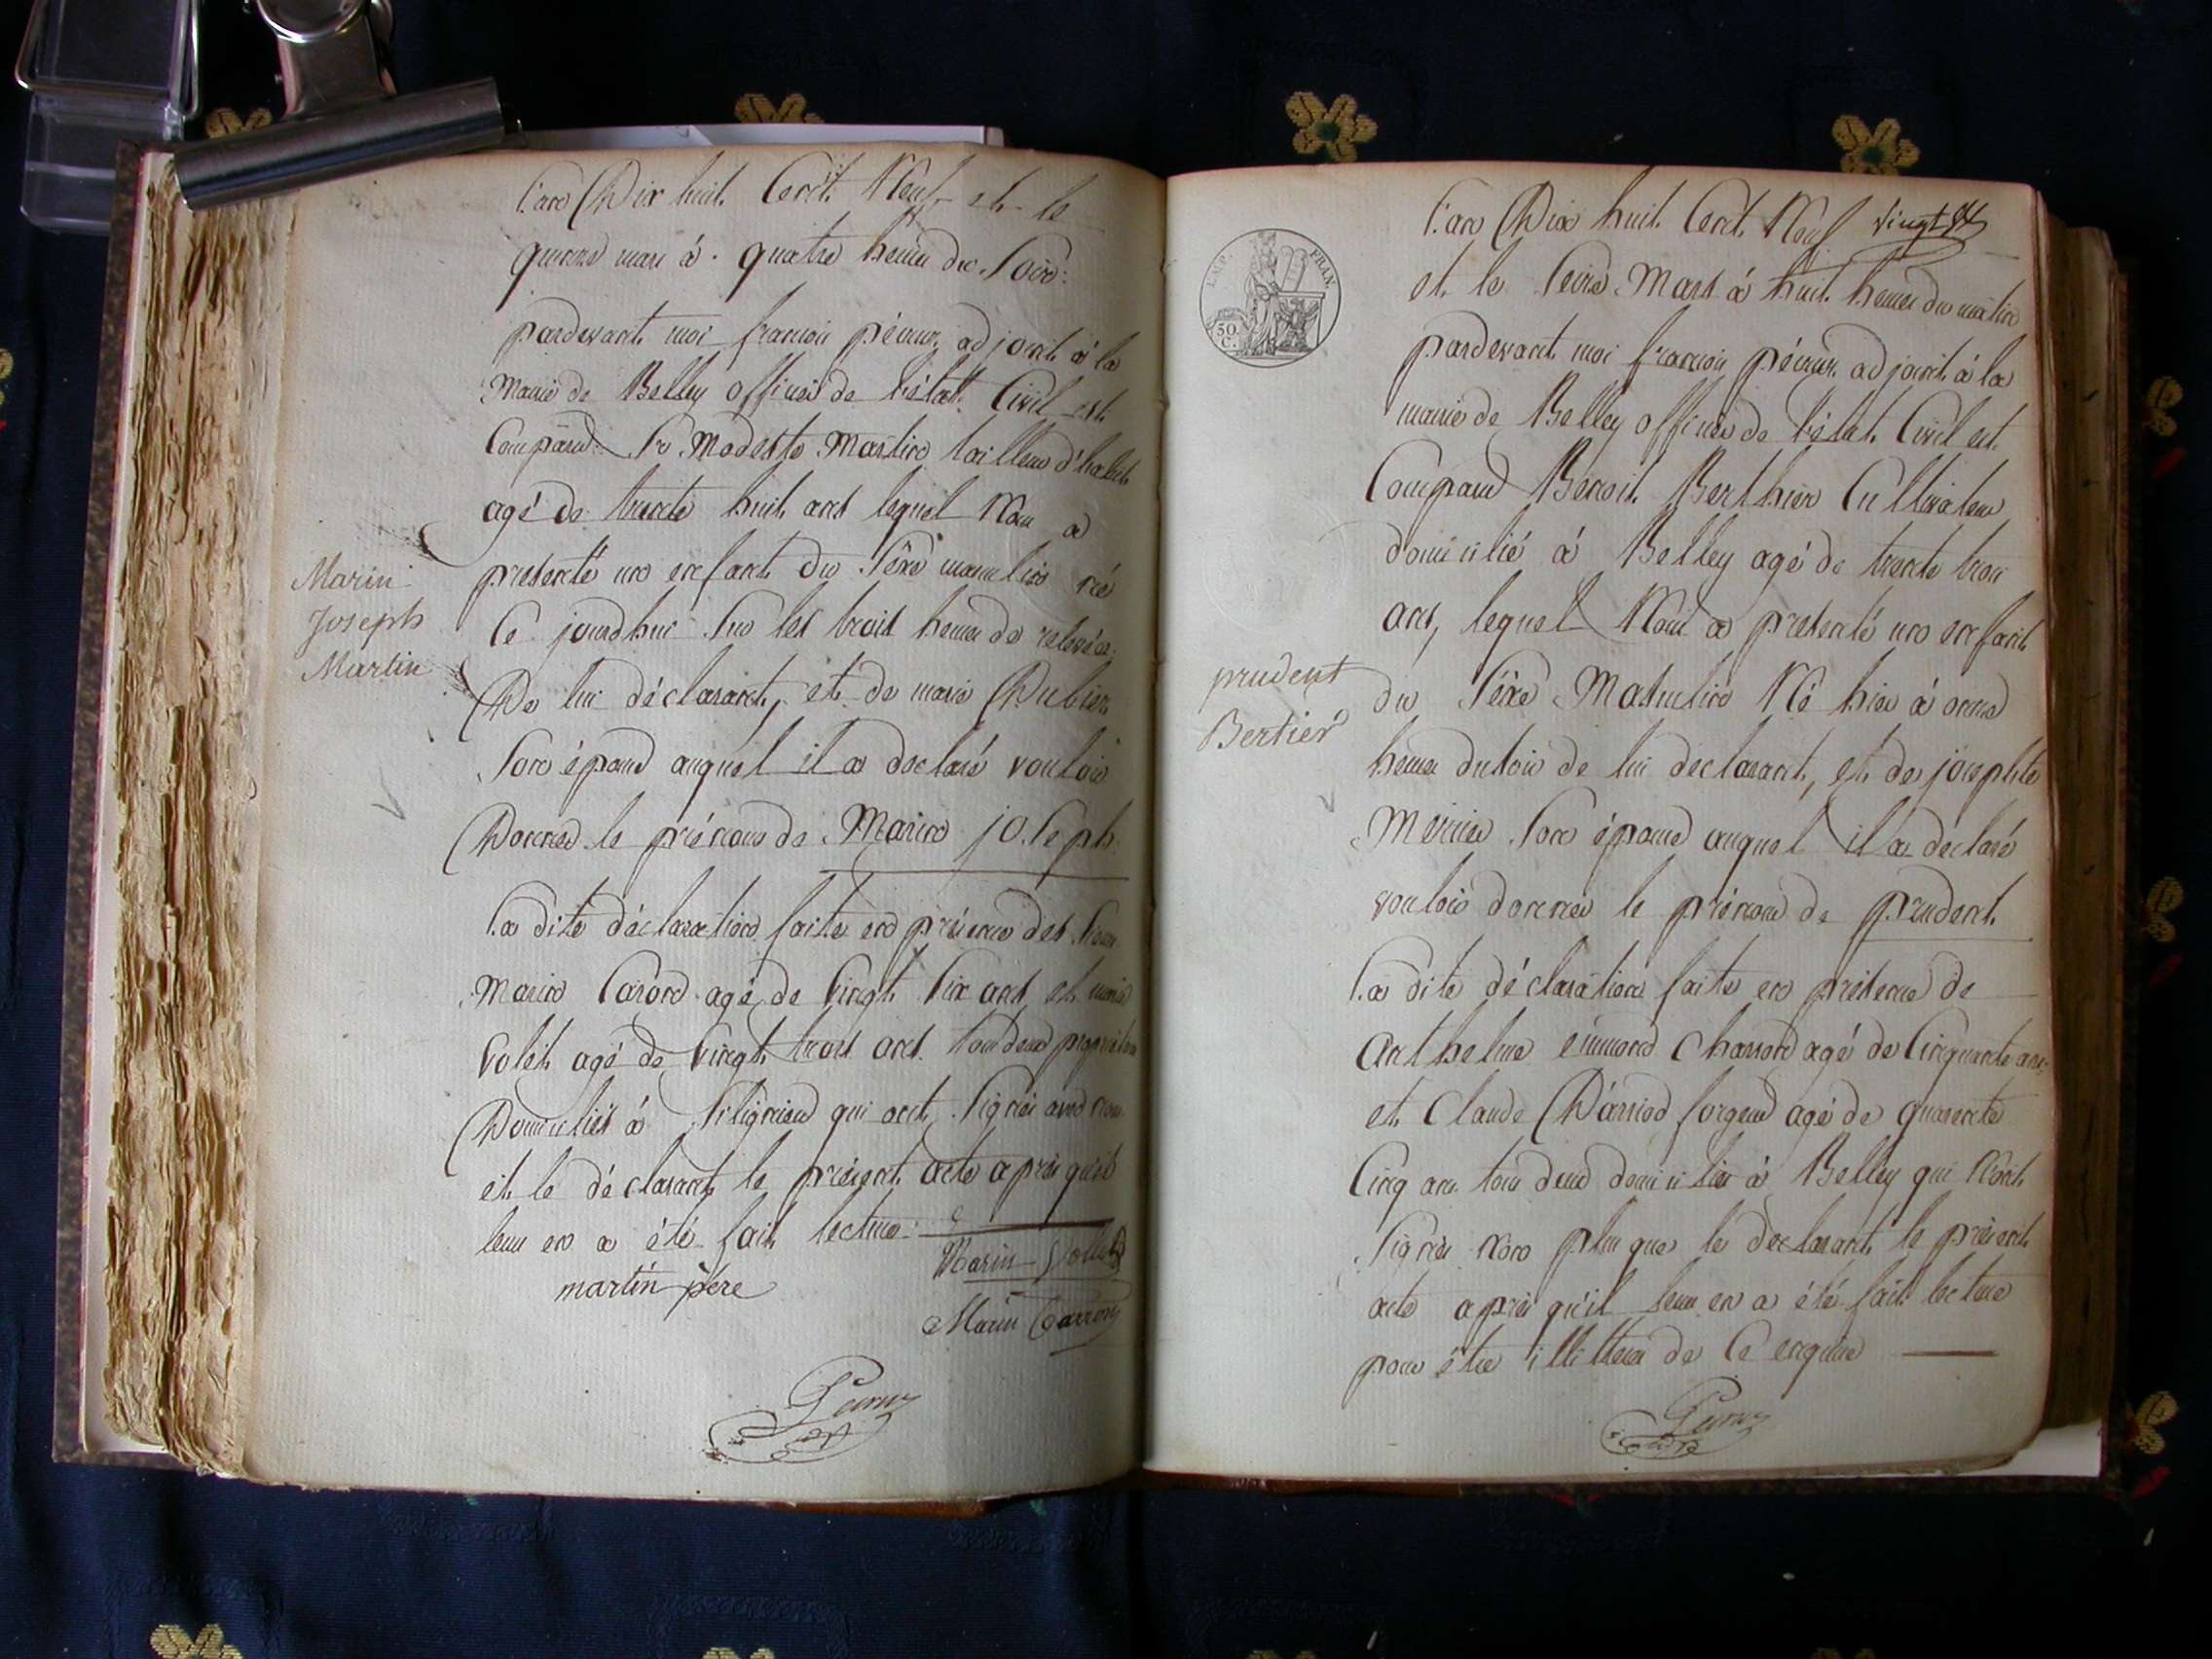 l'an Dix huit Cent Neuf et le
quinze mars á quatre heures du Soir
pardevant moi françois péuruz adjoint á la
Mairie de Belley officier de l'état Civil est
Comparu Sr Modeste Martin tailleur d'habits
agé de trente huit ans lequel Nous a
presenté un enfant du Séxe masculin né
Ce jourdhui Sur les trois heures de relevée
De lui déclarant, et de marie Dubier
Son épouse auquel il a déclaré vouloir
Donner le prénom de Marin joseph
La dite déclaration faite en présence des Sieurs
Marin Caron agé de Vingt Six ans et marin
Volet agé de Vingt trois ans tous deux propriétaires
Domiciliés á qui ont Signés avec nous
et le déclarant le présent acte après qu'il
leur en a été fait lecture
martin pére
Marin Vollet
Marin Carron
Marin
Joseph
Martin
Vingt
I.MP. FRAN.
50.
C.
l'an Dix huit Cent Neuf
et le Seize Mars á huit heures du matin
pardevant moi françois péuruz adjoint á la
mairie de Belley officier de l'état Civil est
Comparu Benoit Berthier Cultivateur
domicilié á Belley agé de trente trois
ans, lequel Nous a presenté un enfant
du Séxe Masculin Né hier á onze
heures du soir de lui declarant, et de josephte
Mercier Son épouse auquel il a déclaré
vouloir donner le prénom de prudent
La dite déclaration faite en présence de
Anthelme eimmond Charson agé de Cinquante ans
et Claude forgeur agé de quarente
Cinq ans tous deux domiciliés á Belley qui N'ont
Signés Non plus que le declarant le présent
acte après qu'il leur en a été fait lecture
pour étre illitteré de Ce enquis
prudent
Bertier